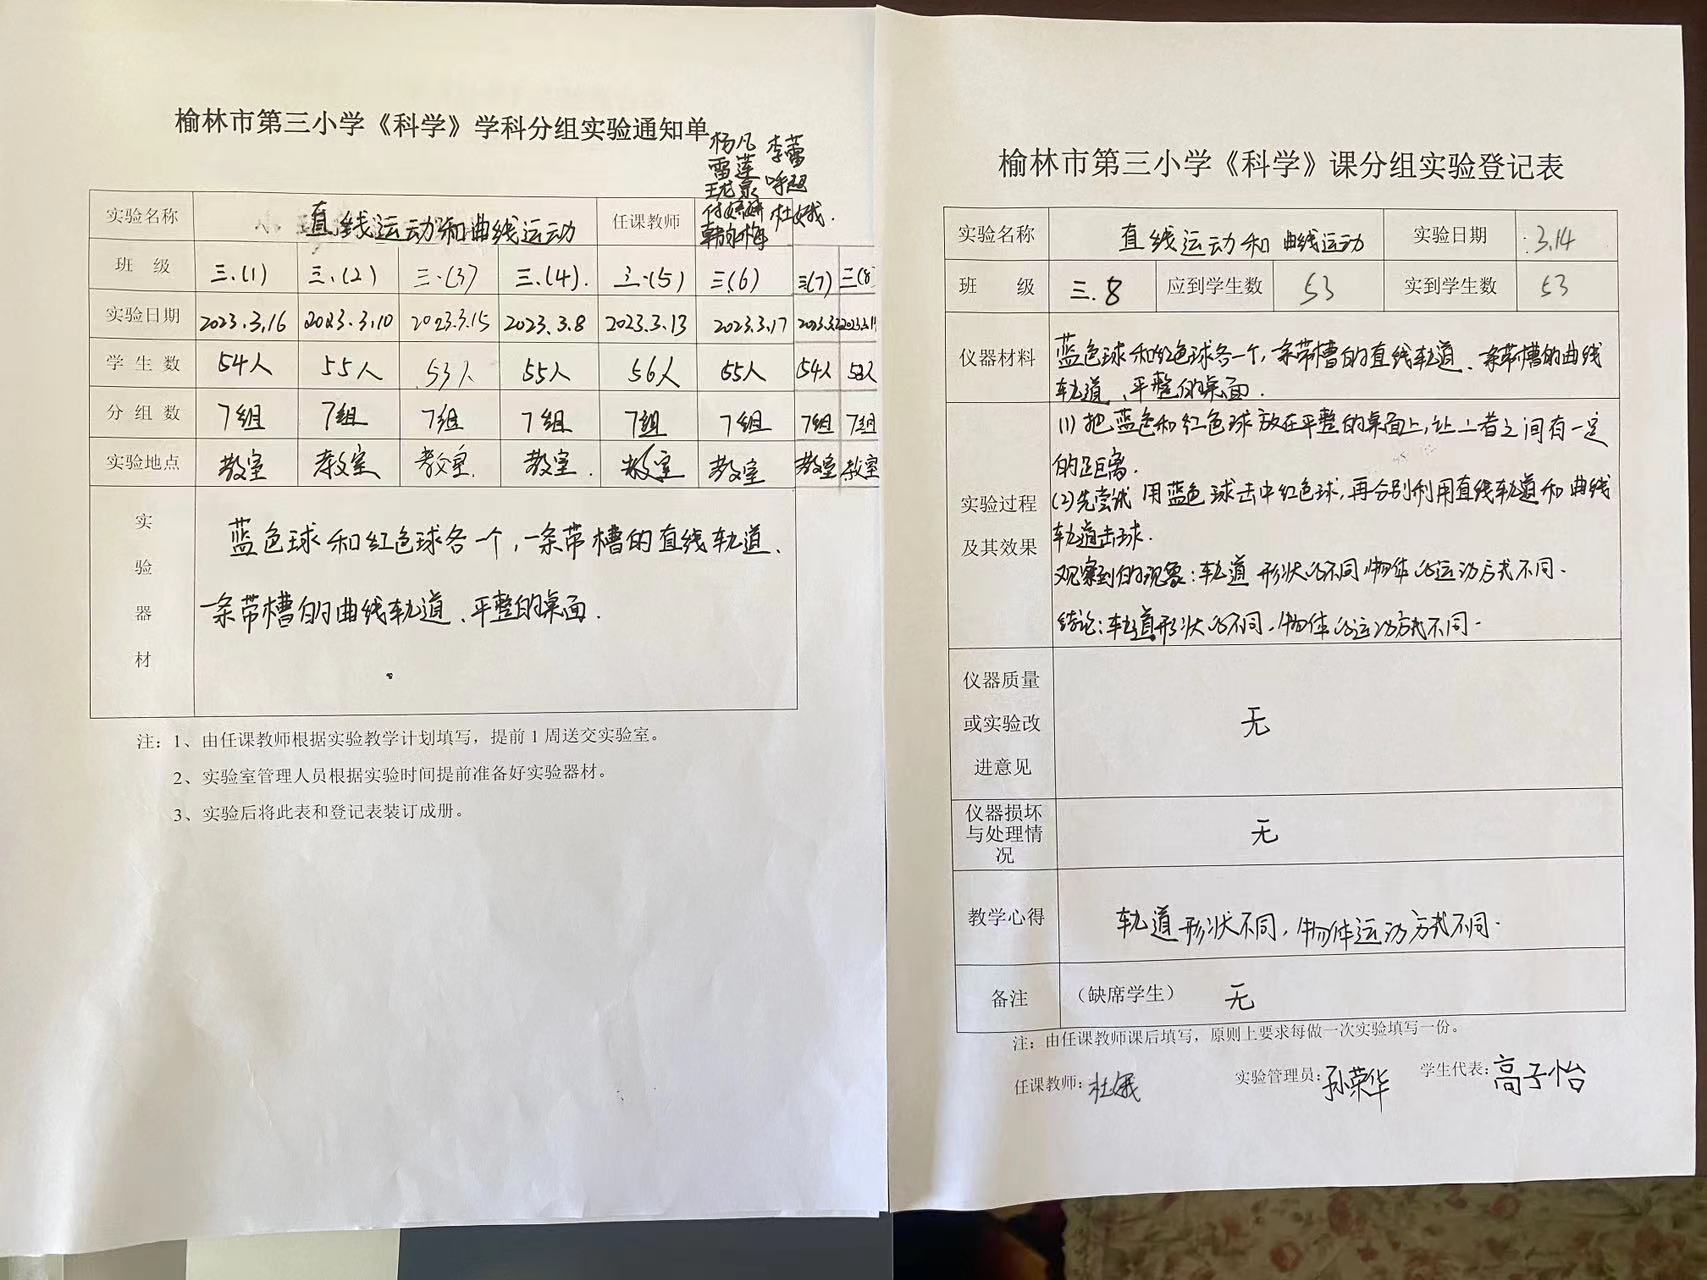 榆林市第三小学《科学》学科分组实验通知单
杨凡 李蕾
雷莲
呼超
付婷婷 杜娥.
实验名称 直线运动和曲线运动 任课教师
班 级 三.(1) 三.(2) 三.(3) 三.(4). 三.(5) 三(6) 三(7) 三(8)
实验日期 2023.3.16 2023.3.10 2023.3.15 2023.3.8 2023.3.13 2023.3.17
学 生 数 54人 55人 53人 55人 56人 55人 54人 53人
分 组 数 7组 7组 7组 7组 7组 7组 7组 7组
实验地点 教室 教室 教室. 教室. 教室 教室 教室 教室
实验器材
蓝色球和红色球各一个,一条带槽的直线轨道、
一条带槽的曲线轨道、平整的桌面.
注：1、由任课教师根据实验教学计划填写，提前1周送交实验室。
2、实验室管理人员根据实验时间提前准备好实验器材。
3、实验后将此表和登记表装订成册。
榆林市第三小学《科学》课分组实验登记表
实验名称 直线运动和曲线运动 实验日期 3.14
班 级 三.8 应到学生数 53 实到学生数 53
仪器材料 蓝色球和红色球各一个,一条带槽的直线轨道、一条带槽的曲线
轨道、平整的桌面.
实验过程
及其效果
(1)把蓝色和红色球放在平整的桌面上,让二者之间有一定
的距离.
(2)先尝试用蓝色球击中红色球,再分别利用直线轨道和曲线
轨道击球.
观察到的现象:轨道形状的不同物体的运动方式不同.
结论:轨道形状的不同,物体的运动方式不同.
仪器质量
或实验改
进意见
无
仪器损坏
与处理情
况
无
教学心得 轨道形状不同,物体运动方式不同.
备注 （缺席学生） 无
注：由任课教师课后填写，原则上要求每做一次实验填写一份。
任课教师:杜娥 实验管理员:孙荣华 学生代表:高子怡